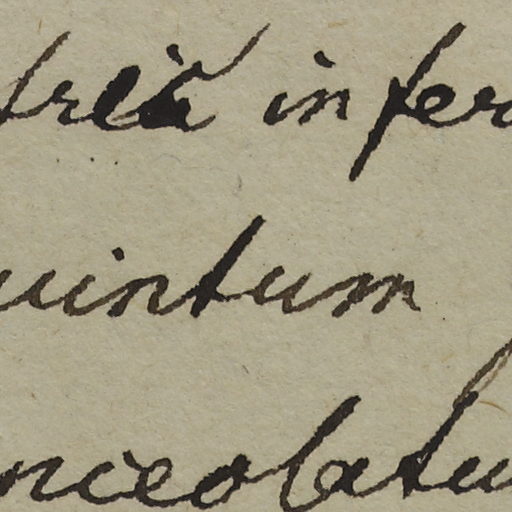 tria infer
uintum
nceolatu